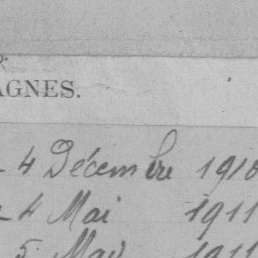 AGNES.
4 Décembre 1910
4 Mai 1911
5 May 1911